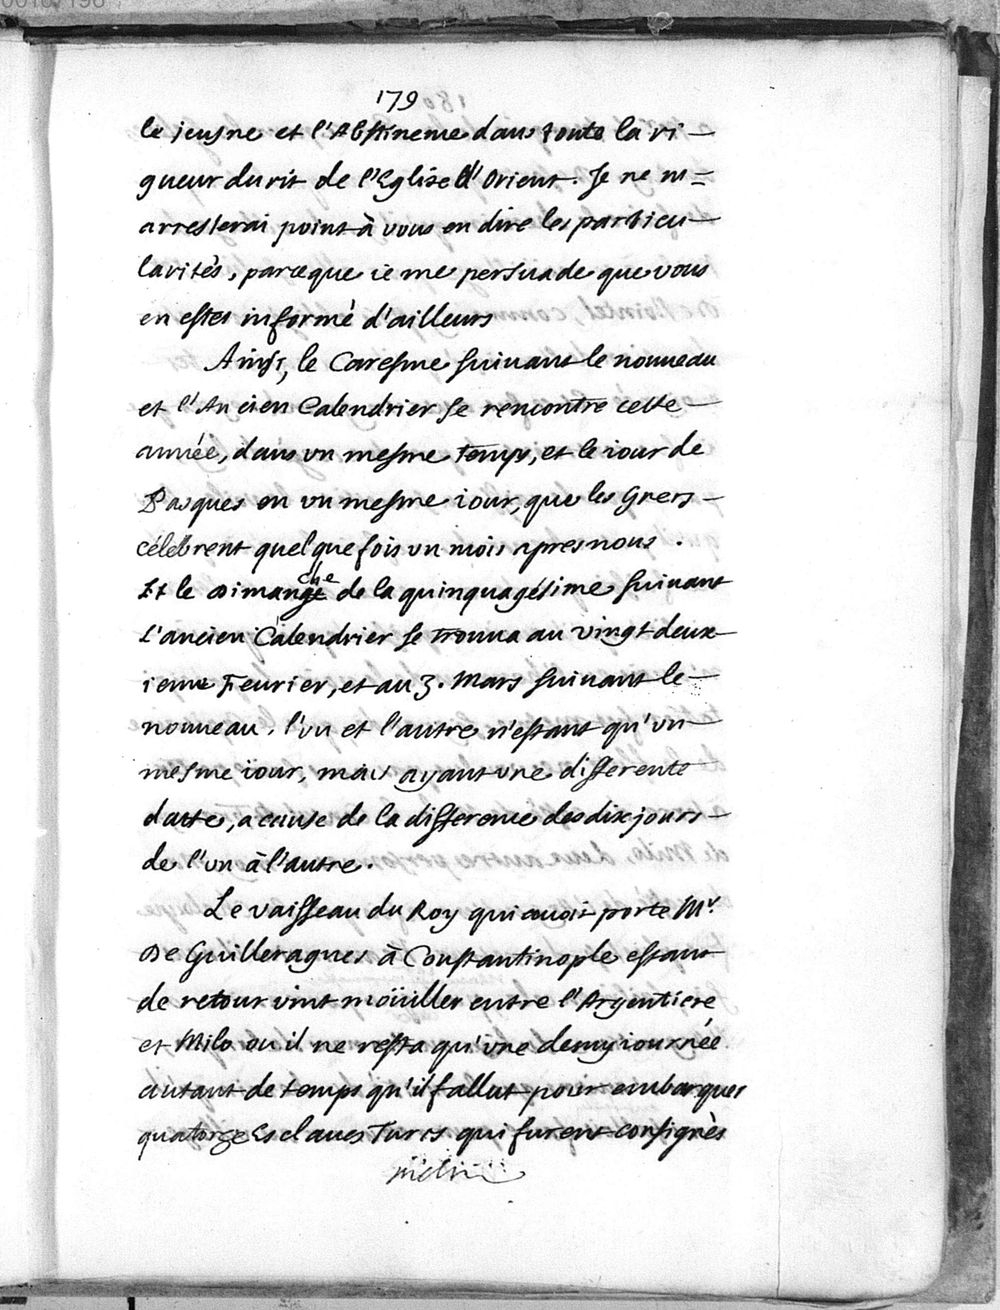 179
le jeusne et l'Abstinence dans toute la ri-
gueur du rit de l'Eglise d'Orient. Je ne m=
arresterai point à vous en dire les particu-
larités, parceque ie me persuade que vous
en estes informé d'ailleurs
Ainsi, le Caresme suiuant le nouueau
et l'Ancien Calendrier se rencontre cette
année, dans vn mesme temps, et le iour de
Pasques en vn mesme iour, que les Grecs
célébrent quelque fois vn mois apres nous.
Et le Dimanche de la quinquagésime suiuant
l'ancien Calendrier se trouua au vingt deux-
ieme Feurier, et au 3. Mars suiuant le
nouueau, l'vn et l'autre n'estant qu'vn
mesme iour, mais ayant vne differente
datte, a cause de la difference des dix jours
de l'vn à l'autre.
Le vaisseau du Roy qui auoit porte Mr.
De Guilleragues à Constantinople estant
de retour vint moüiller entre l'Argentiere
et Milo ou il ne resta qu'vne demy iournée
autant de temps qu'il fallut pour embarquer
quatorze Esclaues Turcs qui furent consignés